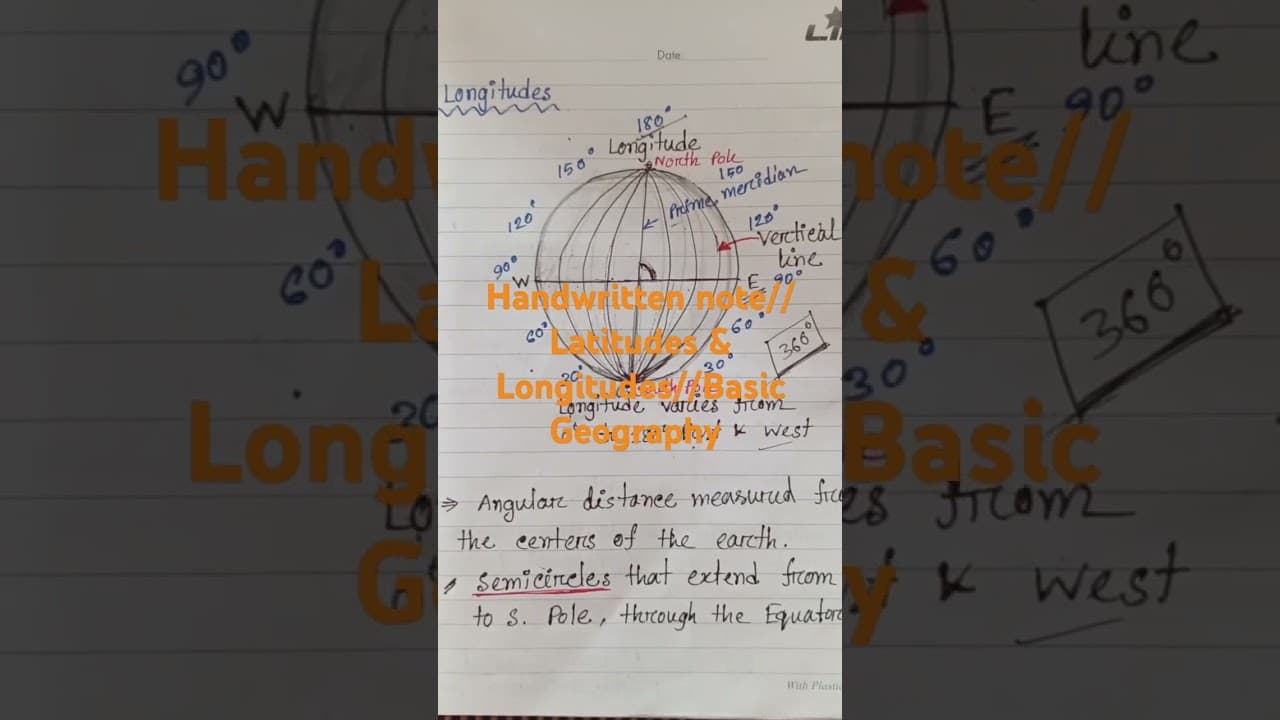 Date:
Longitudes
180°
Longitude
North Pole
150°
150
Prime meridian
120°
120°
Vertical
line
90°
W
E
90°
60°
60°
360°
30°
Longitude varies from
& West
Handwritten note//
Latitudes &
Longitudes//Basic
Geography
⇒ Angular distance measured
the centers of the earth.
Semicircles that extend from
to S. Pole, through the Equator
With Plastic
90°
W
line
E 90°
60°
60°
360°
30°
from
& West